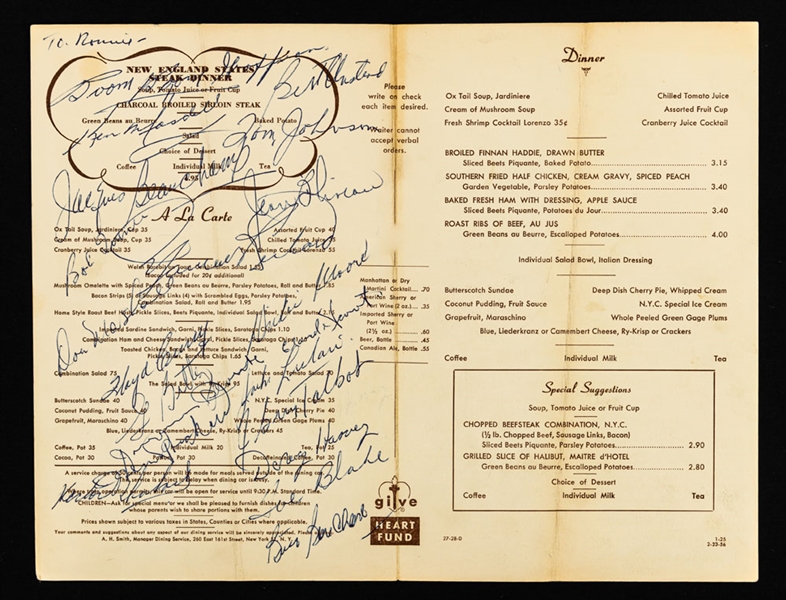 To Ronnie -
NEW ENGLAND STATES
STEAK DINNER
Soup, Tomato Juice or Fruit Cup
CHARCOAL BROILED SIRLOIN STEAK
Green Beans au Beurre Baked Potato
Salad
Choice of Dessert
Coffee Individual Milk Tea
4.95
Bert Olmstead
Ken Mosdell
Tom Johnson
Jacques Beauchamp
A La Carte
Ox Tail Soup, Jardiniere, Cup 35 Assorted Fruit Cup 40
Cream of Mushroom Soup, Cup 35 Chilled Tomato Juice 35
Cranberry Juice Cocktail 35 Fresh Shrimp Cocktail Lorenzo 55
Welsh Rarebit 1.35
(Bacon included for 20¢ additional)
Mushroom Omelette with Spiced Peach, Green Beans au Beurre, Parsley Potatoes, Roll and Butter 1.85
Bacon Strips (5) or Sausage Links (4) with Scrambled Eggs, Parsley Potatoes,
Combination Salad, Roll and Butter 1.95
Home Style Roast Beef Hash, Pickle Slices, Beets Piquante, Individual Salad Bowl, Roll and Butter
Imported Sardine Sandwich, Garni, Pickle Slices, Saratoga Chips 1.10
Combination Ham and Cheese Sandwich, Garni, Pickle Slices, Saratoga Chips
Toasted Chicken, Bacon and Lettuce Sandwich, Garni,
Pickle Slices, Saratoga Chips 1.65
Combination Salad 75 Lettuce and Tomato Salad 70
The Salad Bowl with Ry-Krisp 95
Butterscotch Sundae 40 N.Y.C. Special Ice Cream
Coconut Pudding, Fruit Sauce Deep Dish Cherry Pie 40
Grapefruit, Maraschino 40 Whole Peeled Green Gage Plums
Blue, Liederkranz or Camembert Cheese, Ry-Krisp or Crackers 45
Coffee, Pot 35 Individual Milk 20 Tea, Pot 35
Cocoa, Pot 30 Postum, Pot 30 Decaffeinated Coffee, Pot
Dickie Moore
Floyd Curry
Jean Guy Talbot
Doug Harvey
Toe Blake
A service charge per person will be made for meals served outside of the dining car.
This service is subject to delay when dining car is busy.
operation permits, dining car will be open for service until 9:30 P.M. Standard Time.
CHILDREN—Ask for special menu or we shall be pleased to furnish dishes for children
whose parents wish to share portions with them.
Prices shown subject to various taxes in States, Counties or Cities where applicable.
Your comments and suggestions about any aspect of our dining service will be sincerely appreciated. Please
A. H. Smith, Manager Dining Service, 260 East 161st Street, New York, N. Y.
Please
write on check
each item desired.
Waiter cannot
accept verbal
orders.
Manhattan or Dry
Martini Cocktail .70
American Sherry or
Port Wine (2 oz.) .35
Imported Sherry or
Port Wine
(2½ oz.) .60
Beer, Bottle .45
Canadian Ale, Bottle .55
give
HEART
FUND
Dinner
Ox Tail Soup, Jardiniere Chilled Tomato Juice
Cream of Mushroom Soup Assorted Fruit Cup
Fresh Shrimp Cocktail Lorenzo 35¢ Cranberry Juice Cocktail
BROILED FINNAN HADDIE, DRAWN BUTTER
Sliced Beets Piquante, Baked Potato 3.15
SOUTHERN FRIED HALF CHICKEN, CREAM GRAVY, SPICED PEACH
Garden Vegetable, Parsley Potatoes 3.40
BAKED FRESH HAM WITH DRESSING, APPLE SAUCE
Sliced Beets Piquante, Potatoes du Jour 3.40
ROAST RIBS OF BEEF, AU JUS
Green Beans au Beurre, Escalloped Potatoes 4.00
Individual Salad Bowl, Italian Dressing
Butterscotch Sundae Deep Dish Cherry Pie, Whipped Cream
Coconut Pudding, Fruit Sauce N.Y.C. Special Ice Cream
Grapefruit, Maraschino Whole Peeled Green Gage Plums
Blue, Liederkranz or Camembert Cheese, Ry-Krisp or Crackers
Coffee Individual Milk Tea
Special Suggestions
Soup, Tomato Juice or Fruit Cup
CHOPPED BEEFSTEAK COMBINATION, N.Y.C.
(½ lb. Chopped Beef, Sausage Links, Bacon)
Sliced Beets Piquante, Parsley Potatoes 2.90
GRILLED SLICE OF HALIBUT, MAITRE d'HOTEL
Green Beans au Beurre, Escalloped Potatoes 2.80
Choice of Dessert
Coffee Individual Milk Tea
27-28-D
1-25
2-23-56